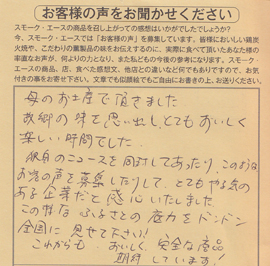 お客様の声をお聞かせください
スモーク・エースの商品を召し上がっての感想はいかがでしたでしょうか?
スモーク・エースでは「お客様の声」を募集しています。皆様においしい鶏炭
火焼や、こだわりの薫製品の味をお伝えするのに、実際に食べて頂いたあなた様の
率直なお声が、何よりの力となり、また私どもの今後の参考になります。スモーク・
エースの商品、店、食べた感想文、他店との違いなど何でもありますので、お気
付きの事をお寄せ下さい。文章でも伝聞絵でもご自由にお書きの上、お送りください。
母のお土産で頂きました
故郷の味を思い出しとてもおいしく
楽しい時間でした。
のニュースを同封してあったり、この様な
お客の声を募集したりして、とてもやる気の
ある企業だと感心いたしました
この様な ふるさとの底力をドンドン
全国に見せて下さい!
これからも おいしく 安全な商品
期待しています!